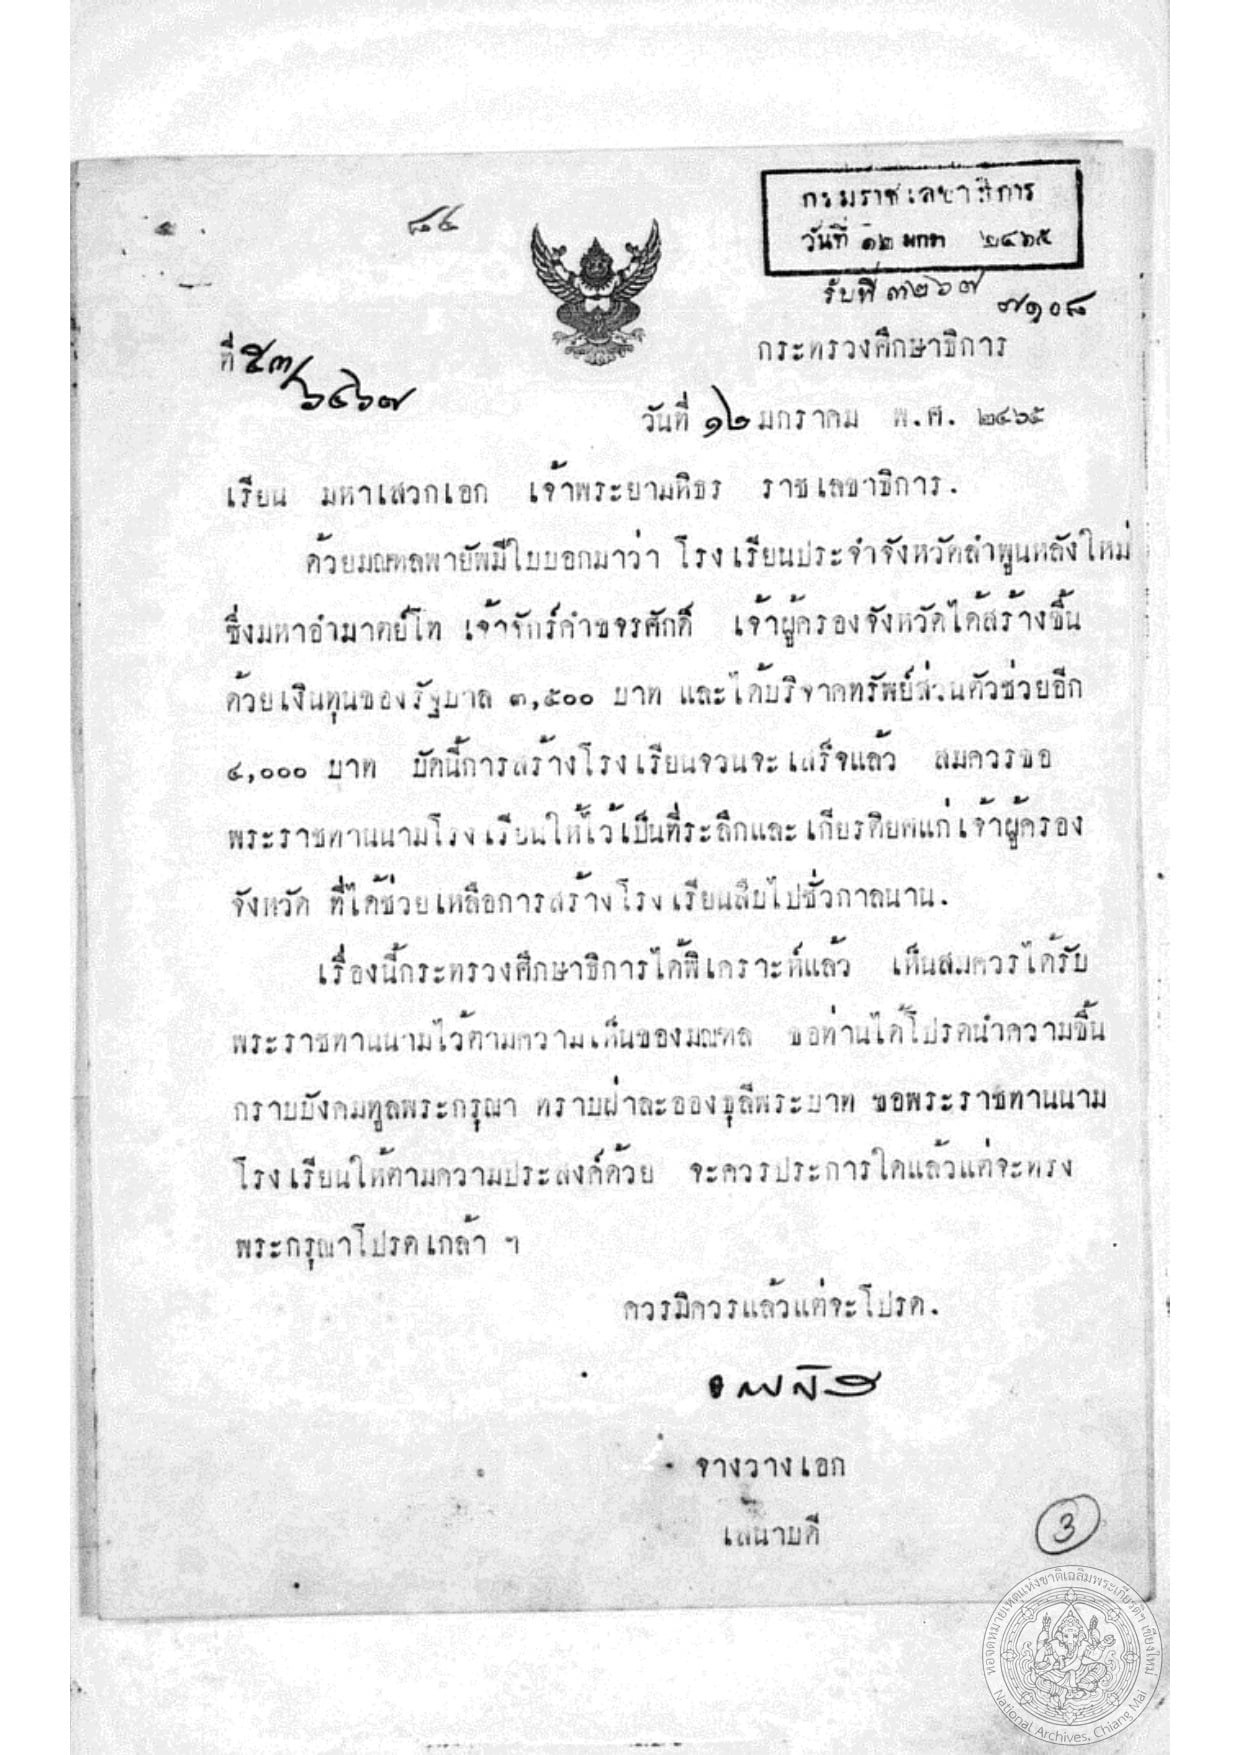 ๘๔
กรมราชเลขาธิการ
วันที่ ๑๒ มกรา ๒๔๖๕
รับที่ ๓๒๖๗
๗๑๐๘
กระทรวงศึกษาธิการ
ที่ ๕๓/๖๔๖๗
วันที่ ๑๒ มกราคม พ.ศ. ๒๔๖๕
เรียน มหาเสวกเอก เจ้าพระยามหิธร ราชเลขาธิการ.
ด้วยมณฑลพายัพมีใบบอกมาว่า โรงเรียนประจำจังหวัดลำพูนหลังใหม่
ซึ่งมหาอำมาตย์โท เจ้าจักร์คำขจรศักดิ์ เจ้าผู้ครองจังหวัดได้สร้างขึ้น
ด้วยเงินทุนของรัฐบาล ๓,๕๐๐ บาท และได้บริจาคทรัพย์ส่วนตัวช่วยอีก
๔,๐๐๐ บาท บัดนี้การสร้างโรงเรียนจวนจะเสร็จแล้ว สมควรขอ
พระราชทานนามโรงเรียนให้ไว้เป็นที่ระลึกและเกียรติยศแก่เจ้าผู้ครอง
จังหวัด ที่ได้ช่วยเหลือการสร้างโรงเรียนสืบไปชั่วกาลนาน.
เรื่องนี้กระทรวงศึกษาธิการได้พิเคราะห์แล้ว เห็นสมควรได้รับ
พระราชทานนามไว้ตามความเห็นของมณฑล ขอท่านได้โปรดนำความขึ้น
กราบบังคมทูลพระกรุณา ทราบฝ่าละอองธุลีพระบาท ขอพระราชทานนาม
โรงเรียนให้ตามความประสงค์ด้วย จะควรประการใดแล้วแต่จะทรง
พระกรุณาโปรดเกล้า ฯ
ควรมิควรแล้วแต่จะโปรด.
จางวางเอก
เสนาบดี
3
หอจดหมายเหตุแห่งชาติเฉลิมพระเกียรติฯ เชียงใหม่
National Archives, Chiang Mai